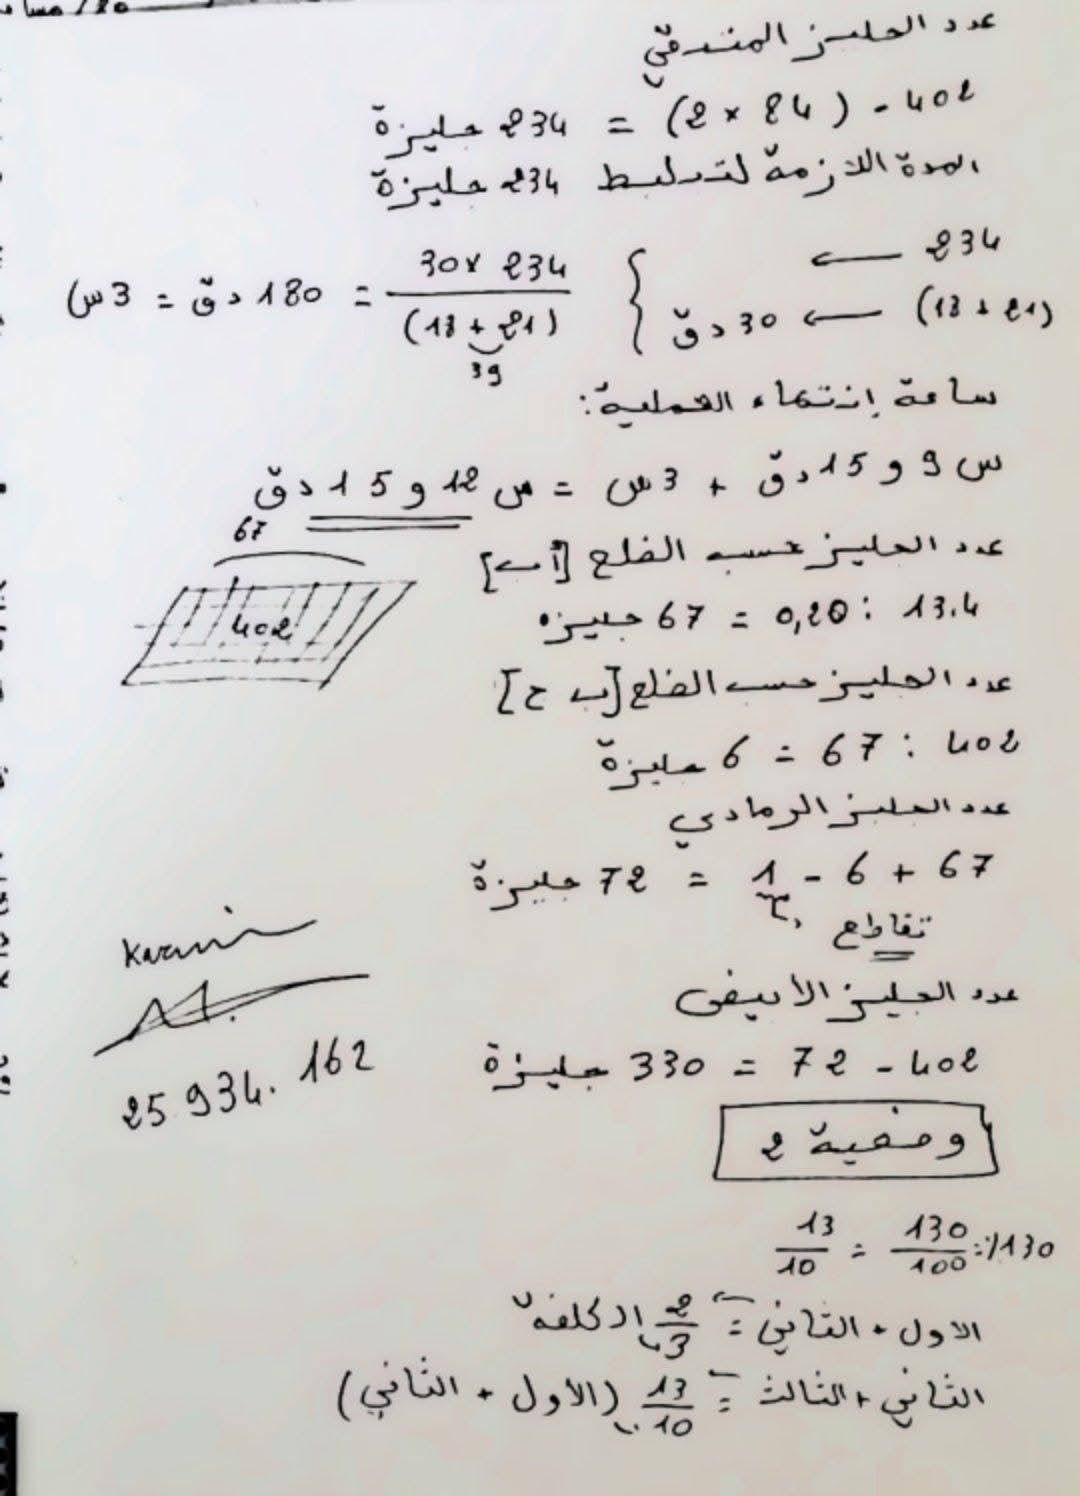 عدد الجليز المتبقي
402 - (84 × 2) = 234 جليزة
المدة اللازمة لتبليط 234 جليزة
234 ←
(18 + 21) ← 30 دق
30 × 234 / (18 + 21) = 180 دق = 3 س
39
ساعة إنتهاء العملية:
س 9 و 15 دق + 3 س = س 12 و 15 دق
67
402
عدد الجليز حسب الضلع [أ ب]
13.4 : 0,20 = 67 جليزة
عدد الجليز حسب الضلع [ب ج]
402 : 67 = 6 جليزة
عدد الجليز الرمادي
67 + 6 - 1 = 72 جليزة
تقاطع
عدد الجليز الأبيض
402 - 72 = 330 جليزة
Karmi
25 934. 162
وضعية 2
130% = 130/100 = 13/10
الاول + الثاني = 2/3 الكلفة
الثاني + الثالث = 13/10 (الأول + الثاني)